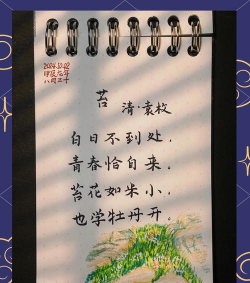 2024.10.02
甲辰龙年
八月三十
苔
清·袁枚
白日不到处，
青春恰自来。
苔花如米小，
也学牡丹开。